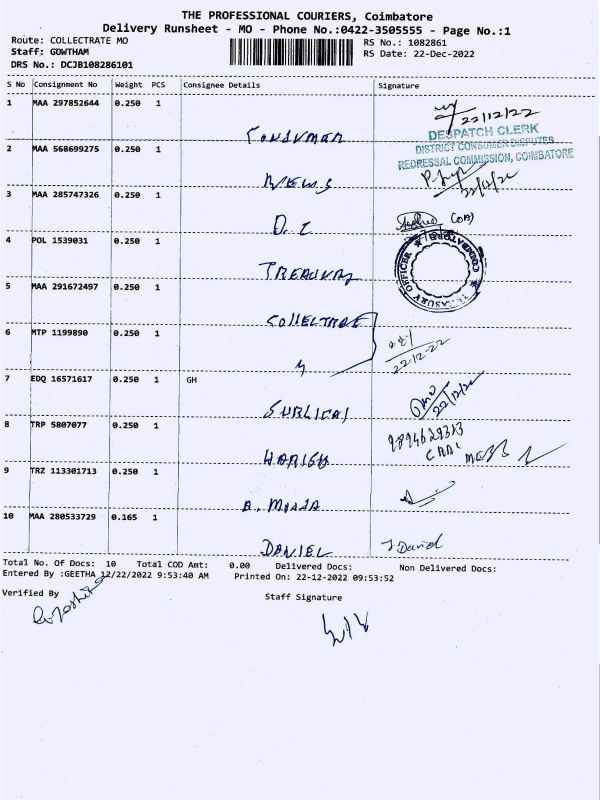 THE PROFESSIONAL COURIERS, Coimbatore
Delivery Runsheet - MO - Phone No.:0422-3505555 - Page No.:1
Route: COLLECTRATE MO
RS No.: 1082861
Staff: GOWTHAM
RS Date: 22-Dec-2022
DRS No.: DCJB108286101
S No Consignment No Weight PCS Consignee Details Signature
1 MAA 297852644 0.250 1
CONSUMER 22/12/22
DESPATCH CLERK
DISTRICT CONSUMER DISPUTES
REDRESSAL COMMISSION, COIMBATORE
2 MAA 568699275 0.250 1
NEWS 22/12/22
3 MAA 285747326 0.250 1
4 POL 1539031 0.250 1
TREASURY
TREASURY OFFICER COIMBATORE
5 MAA 291672497 0.250 1
COLLECTRATE
6 MTP 1199890 0.250 1
22-12-22
7 EDQ 16571617 0.250 1 GH
SURLICAL 22/12/22
8 TRP 5807077 0.250 1
HARISH
9 TRZ 113301713 0.250 1
10 MAA 280533729 0.165 1
DANIEL J David
Total No. Of Docs: 10 Total COD Amt: 0.00 Delivered Docs: Non Delivered Docs:
Entered By :GEETHA 12/22/2022 9:53:40 AM Printed On: 22-12-2022 09:53:52
Verified By
Staff Signature